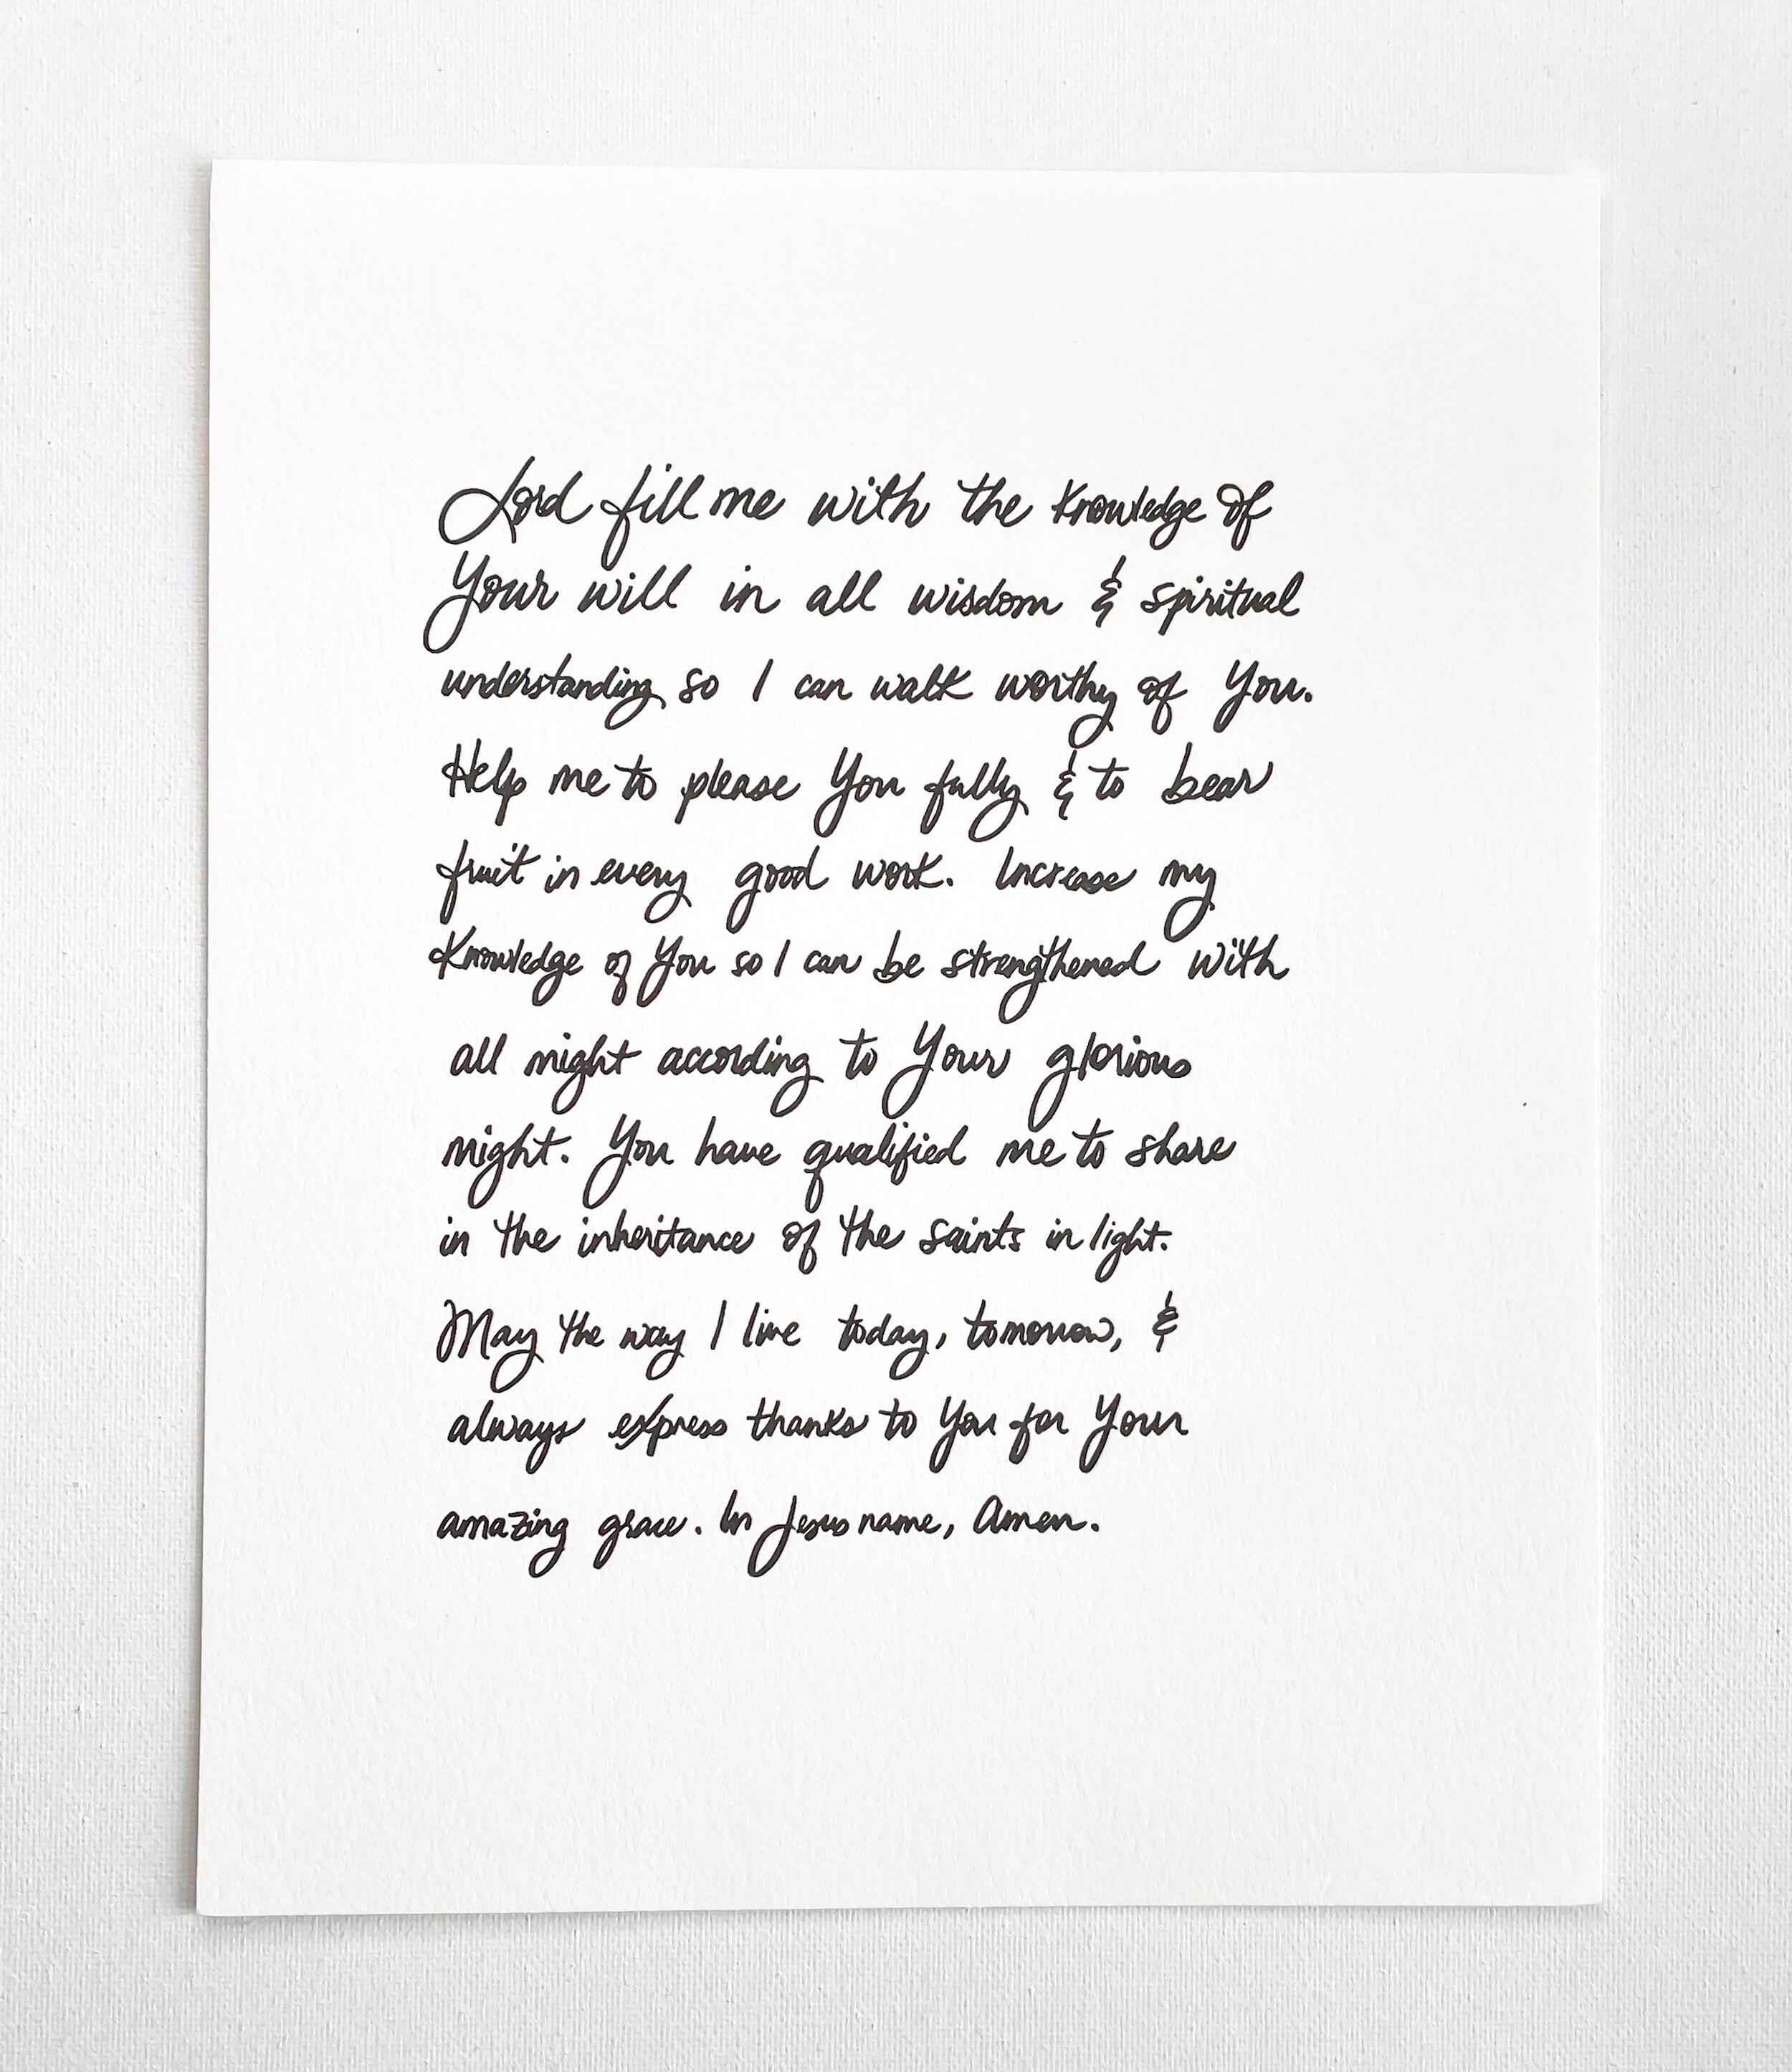 Lord fill me with the knowledge of
Your will in all wisdom & spiritual
understanding so I can walk worthy of You.
Help me to please You fully & to bear
fruit in every good work. Increase my
knowledge of You so I can be strengthened with
all might according to Your glorious
might. You have qualified me to share
in the inheritance of the saints in light.
May the way I live today, tomorrow, &
always express thanks to You for Your
amazing grace. In Jesus name, Amen.